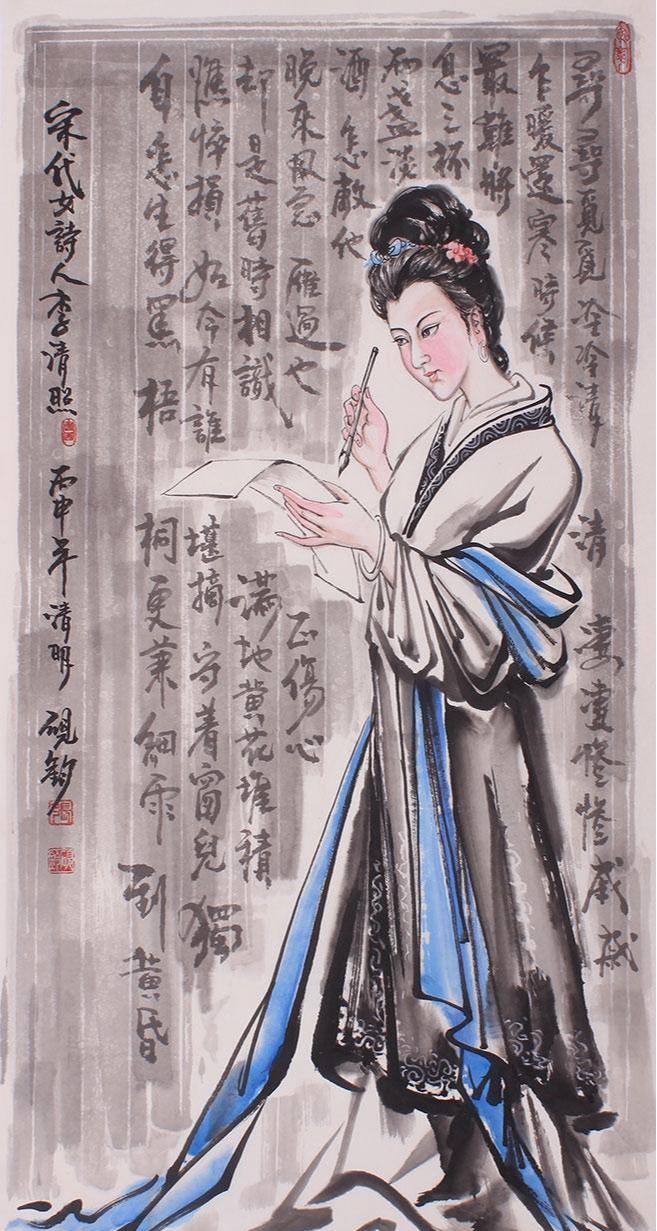 尋尋覓覓冷冷清 清 凄凄慘慘戚戚
乍暖還寒時候
最難將
息三杯
兩盞淡
酒 怎敵他
晚來風急 雁過也 正傷心
却是舊時相識 滿地黄花堆積
憔悴損 如今有誰 堪摘 守着窗兒 獨
自怎生得黑 梧 桐更兼細雨 到黄昏
宋代女詩人李清照 丙申年清明 硯鈞